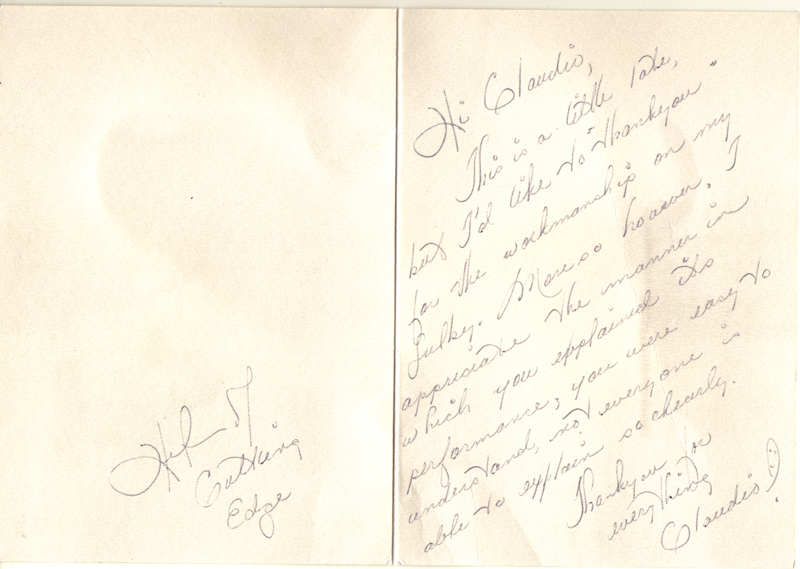 of
Cutting
Edge
Hi Claudio,
This is a little late,
but I'd like to "thankyou"
for the workmanship on my
More so however, I
appreciate the manner in
which you explained its
performance, you were easy to
understand, not everyone is
able to explain so clearly.
Thankyou for
everything
Claudio!